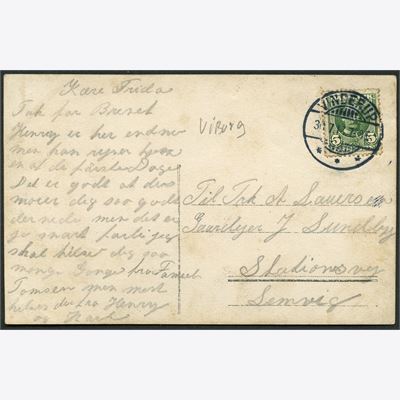 Kære Frida
Tak for Brevet
Henry er her endnu
men han rejser
en af de første Dage
Det er godt at du
moer dig saa godt
der nede men det er
jo snart forbi jeg
skal hilse dig saa
mange Gange fra
Tomsen men mest
hilses du fra Henry
og
Viborg
VINDERUP
5
Til Frk A Laursen
Gaardejer J Sundby
Stationsvej
Lemvig